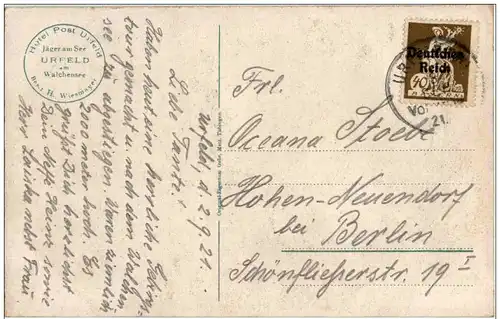 Hotel Post Urfeld
Jäger am See
URFELD
am
Walchensee
Bes. H. Wiesmayer
Urfeld, d. 2.9.21.
Liebe Tante!
Haben heut eine herrliche
tour gemacht u. nach dem Walchen-
see zu abgestiegen. Waren ziemlich
2000 meter hoch. Es
grüßt Dich herzlichst
Dein Neffe Heinz sowie
Herr nebst Frau.
Deutsches
Reich
40
21.
Frl.
Oceana Stoebe
Hohen-Neuendorf
bei Berlin
Schönfliesserstr. 19 I